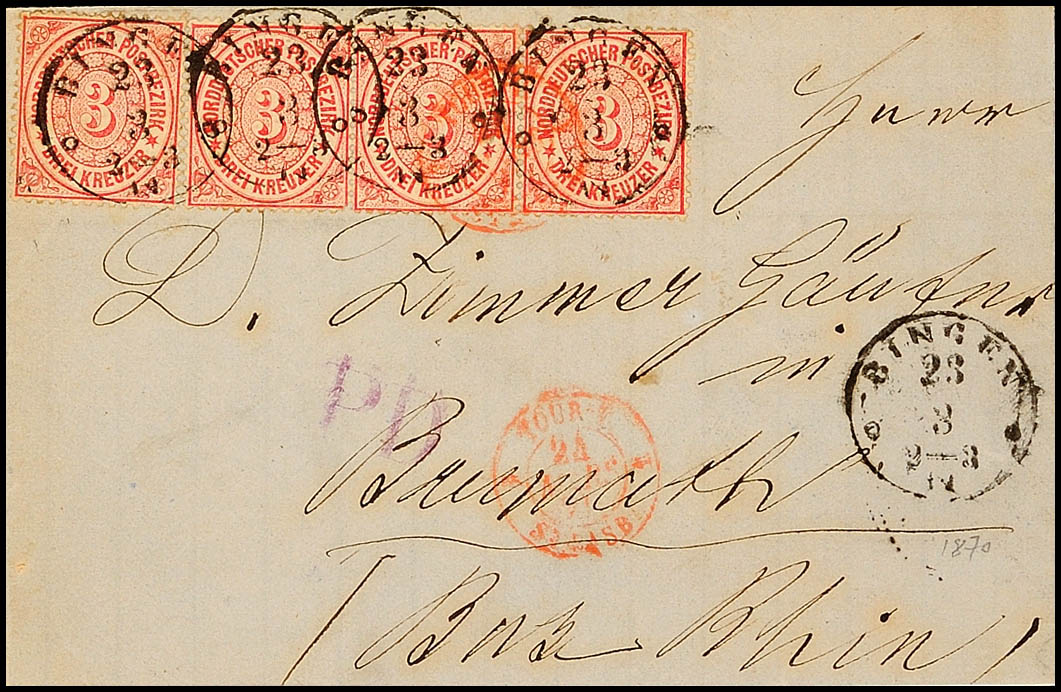 NORDDEUTSCHER POSTBEZIRK
3
DREI KREUZER
NORDDEUTSCHER POSTBEZIRK
3
DREI KREUZER
NORDDEUTSCHER POSTBEZIRK
3
DREI KREUZER
NORDDEUTSCHER POSTBEZIRK
3
DREI KREUZER
BINGEN
23
3
2-3
N
BINGEN
23
3
2-3
N
BINGEN
23
3
2-3
N
BINGEN
23
3
2-3
N
Herrn
D. Zimmer
in
BINGEN
23
3
2-3
N
PD
24
Brumath
1870
(Bas Rhin)